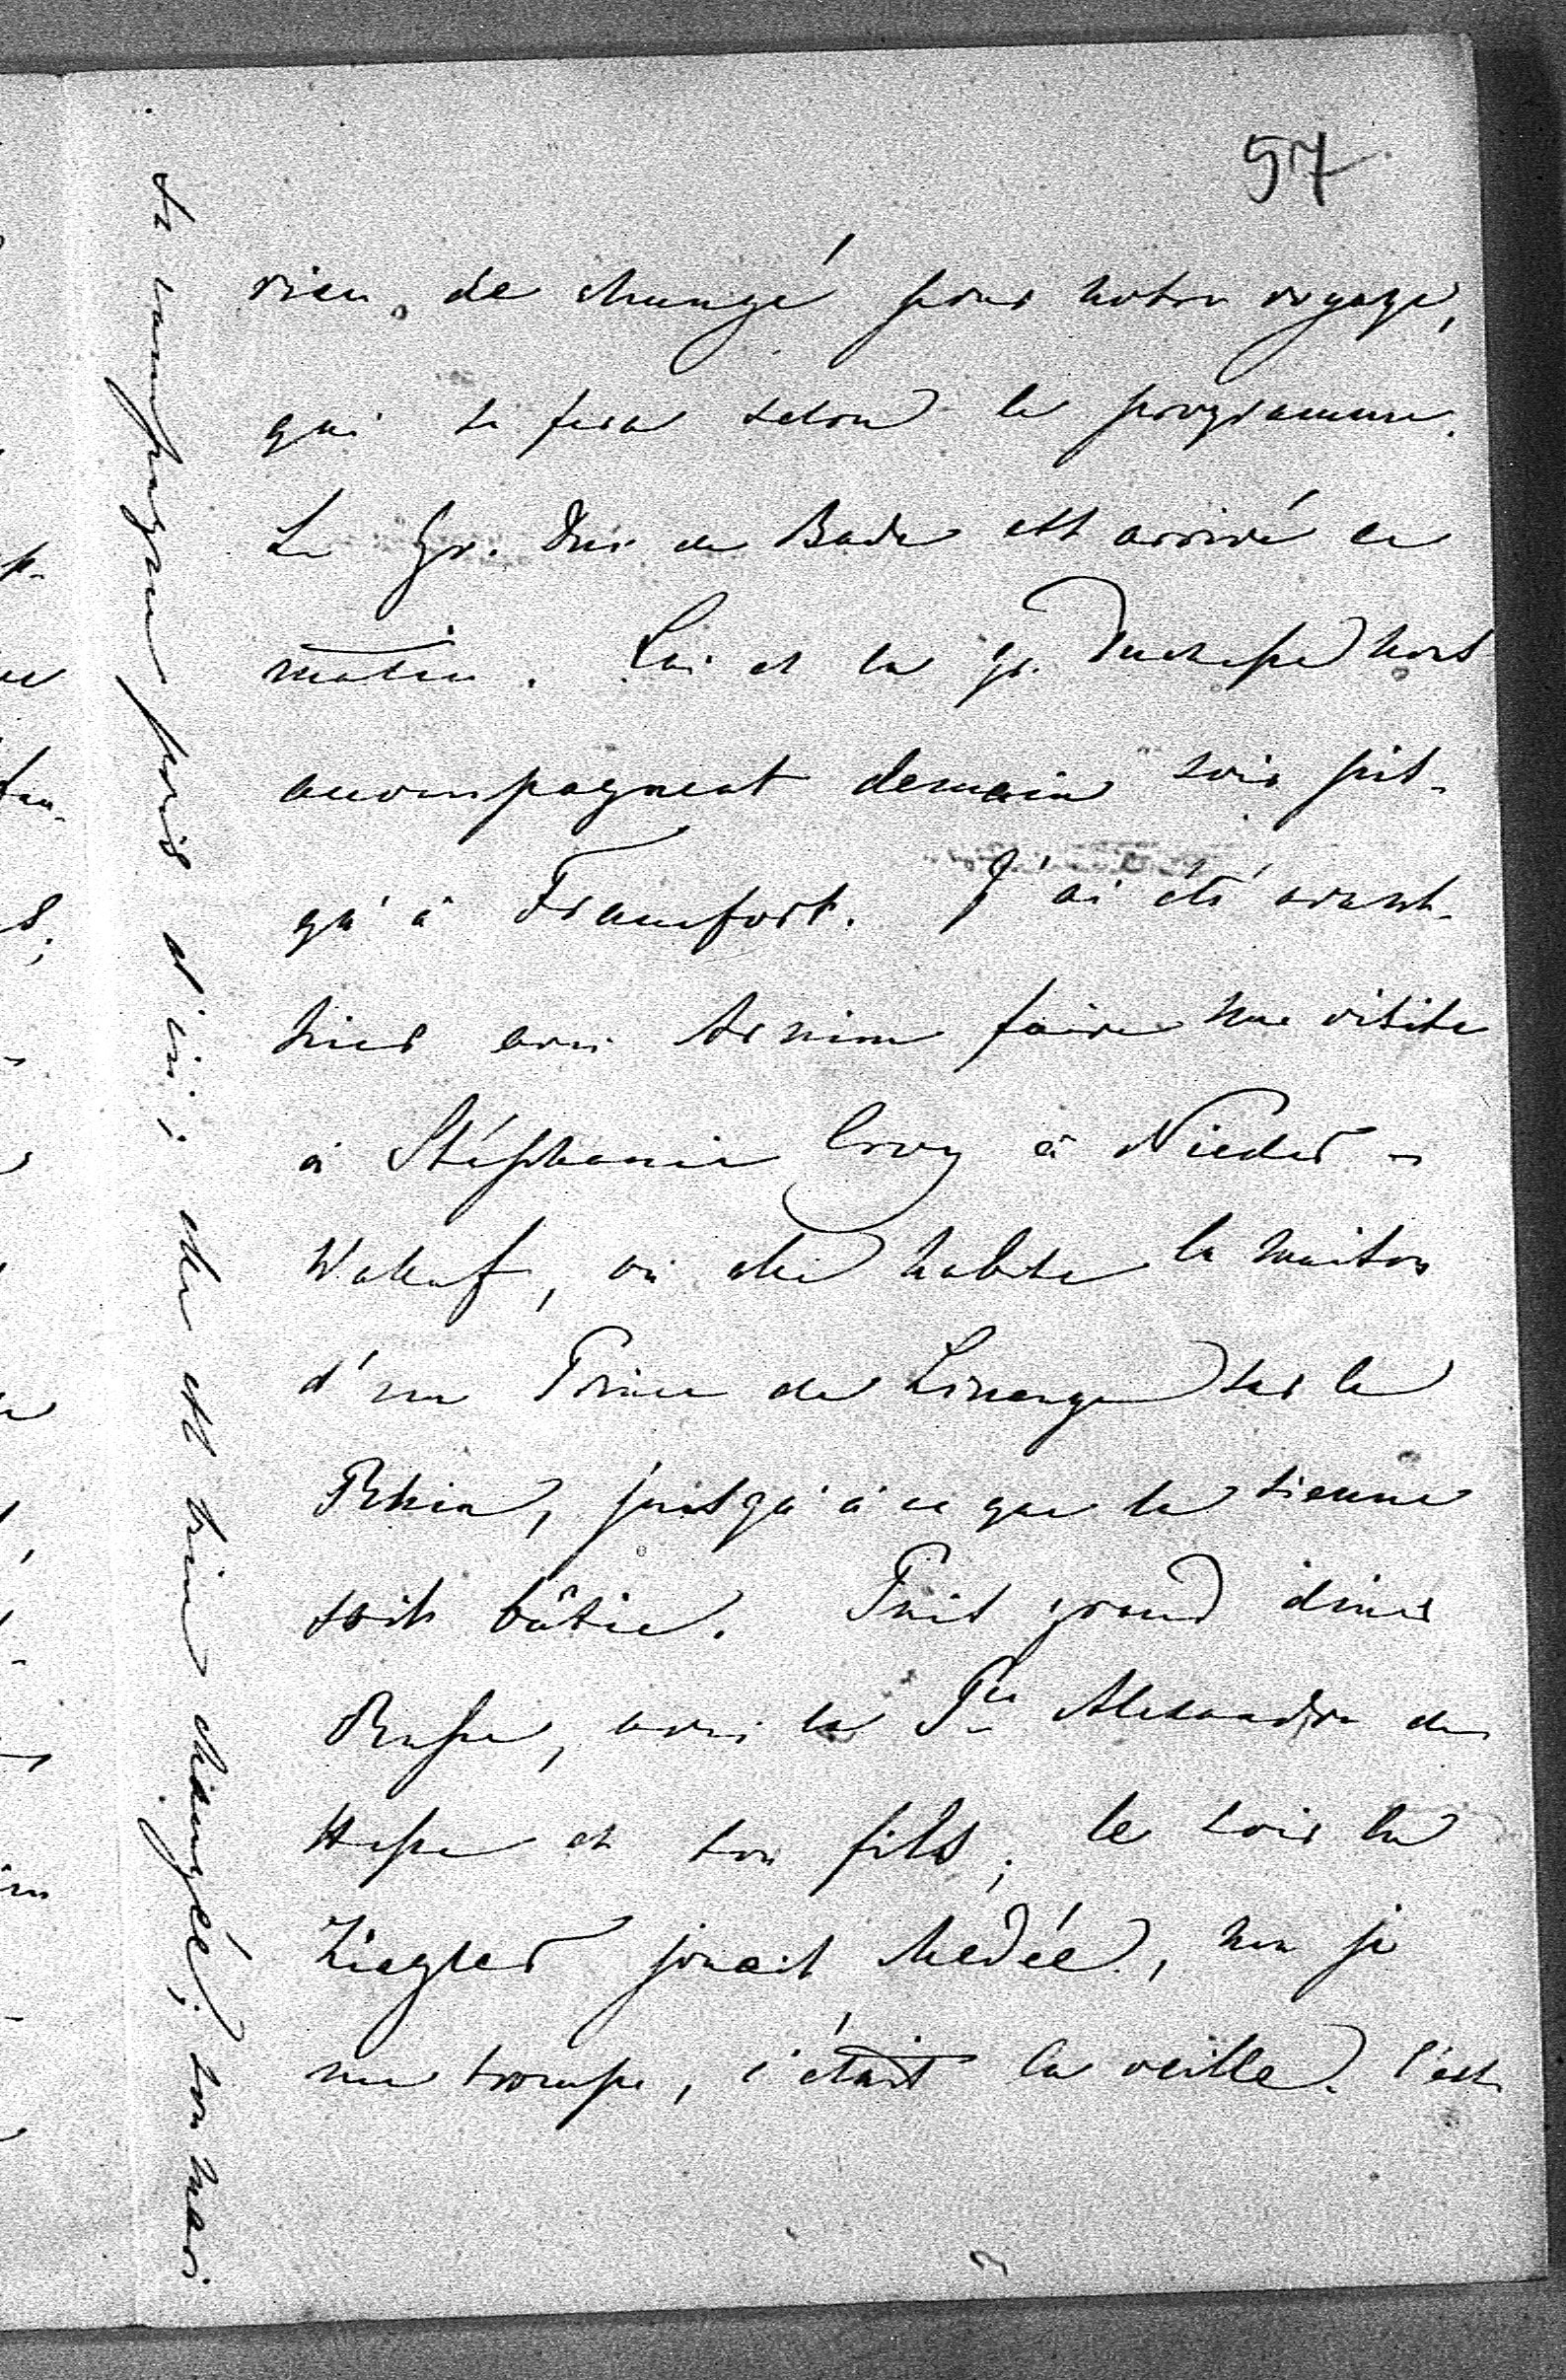 57
rien de changé pour notre voyage,
qui se fera selon le programme.
Le Gr. Duc de Bade est arrivé ce
matin. Lui et la gr. Duchesse nous
accompagnent demain soir jus-
qu'à Francfort. J'ai été avant-
hier avec Arnim faire une visite
à Stéphanie Croy à Nieder-
Walluf, où elle habite la maison
d'un Prince de Linange sur le
Rhin, jusqu'à ce que la sienne
soit bâtie. Puis grand diner
Russe, avec la Pce Alexandre de
Hesse et son fils; le soir la
Ziegler jouait Medée, non je
me trompe, c'était la veille. C'est
sa campagne près d'ici; elle est bien changée; son mari